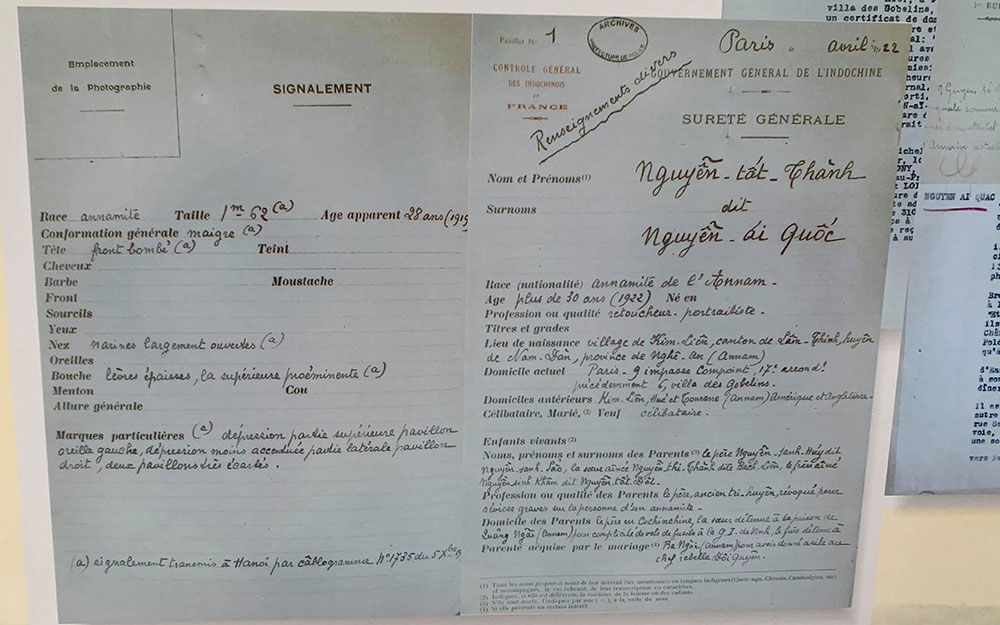 Emplacement
de la Photographie
SIGNALEMENT
Race annamite Taille 1m 62 (a) Age apparent 28 ans (1919
Conformation générale maigre (a)
Tête front bombé (a) Teint
Cheveux
Barbe Moustache
Front
Sourcils
Yeux
Nez narines largement ouvertes (a)
Oreilles
Bouche lèvres épaisses, la supérieure proéminente (a)
Menton Cou
Allure générale
Marques particulières (a) dépression partie supérieure pavillon
oreille gauche, dépression moins accentuée partie latérale pavillon
droit, deux pavillons très écartés.
(a) signalement transmis à Hanoi par câblogramme No 1735 du 5 Xbre 9
Feuille No 1
ARCHIVES
PREFECTURE DE POLICE
Paris avril 22
CONTROLE GÉNÉRAL
DES INDOCHINOIS
EN
FRANCE
Renseignements divers
GOUVERNEMENT GÉNÉRAL DE L'INDOCHINE
SURETÉ GÉNÉRALE
Nom et Prénoms(1) Nguyễn-tất-Thành
Surnoms dit
Nguyễn-ái Quốc
Race (nationalité) annamite de l'Annam.
Age plus de 30 ans (1922) Né en
Profession ou qualité retoucheur portraitiste.
Titres et grades
Lieu de naissance village de Kim-Liên, canton de Lâm-Thinh, huyện
de Nam-Dàn, province de Nghê-An (Annam)
Domicile actuel Paris - 9 impasse Compoint, 17e arrondt
précédemment 6, villa des Gobelins.
Domiciles antérieurs Kim-Liên, Hué et Tourane (Annam) Amérique et Angleterre.
Célibataire, Marié, (2) Veuf célibataire.
Enfants vivants (2)
Noms, prénoms et surnoms des Parents (3) le père Nguyễn-Sanh-Huy dit
Nguyễn-sanh-Sắc, la sœur aînée Nguyễn-thi-Thanh dite Bach-Liên, le frère aîné
Nguyễn sinh Khâm dit Nguyễn-tất-Đạt.
Profession ou qualité des Parents le père, ancien tri-huyện, révoqué pour
sévices graves sur la personne d'un annamite.
Domicile des Parents le père en Cochinchine, la sœur détenue à la prison de
Quảng Ngãi (Annam) pour complicité de vols de fusils à la G.I. de Vinh, le frère détenu à
Parenté acquise par le mariage (4) Ba Ngòi (Annam) pour avoir donné asile au
chef rebelle Đội Quyên.
(1) Tous les noms propres et noms de lieu doivent être mentionnés en langues indigènes (Quốc-ngu, Chinois, Cambodgien, etc)
et accompagnés, le cas échéant, de leur transcription en caractères.
(2) Indiquer, si elle est différente, la résidence de la femme ou des enfants.
villa des Gobelins,
un certificat de
NGUYEN AI QUAC